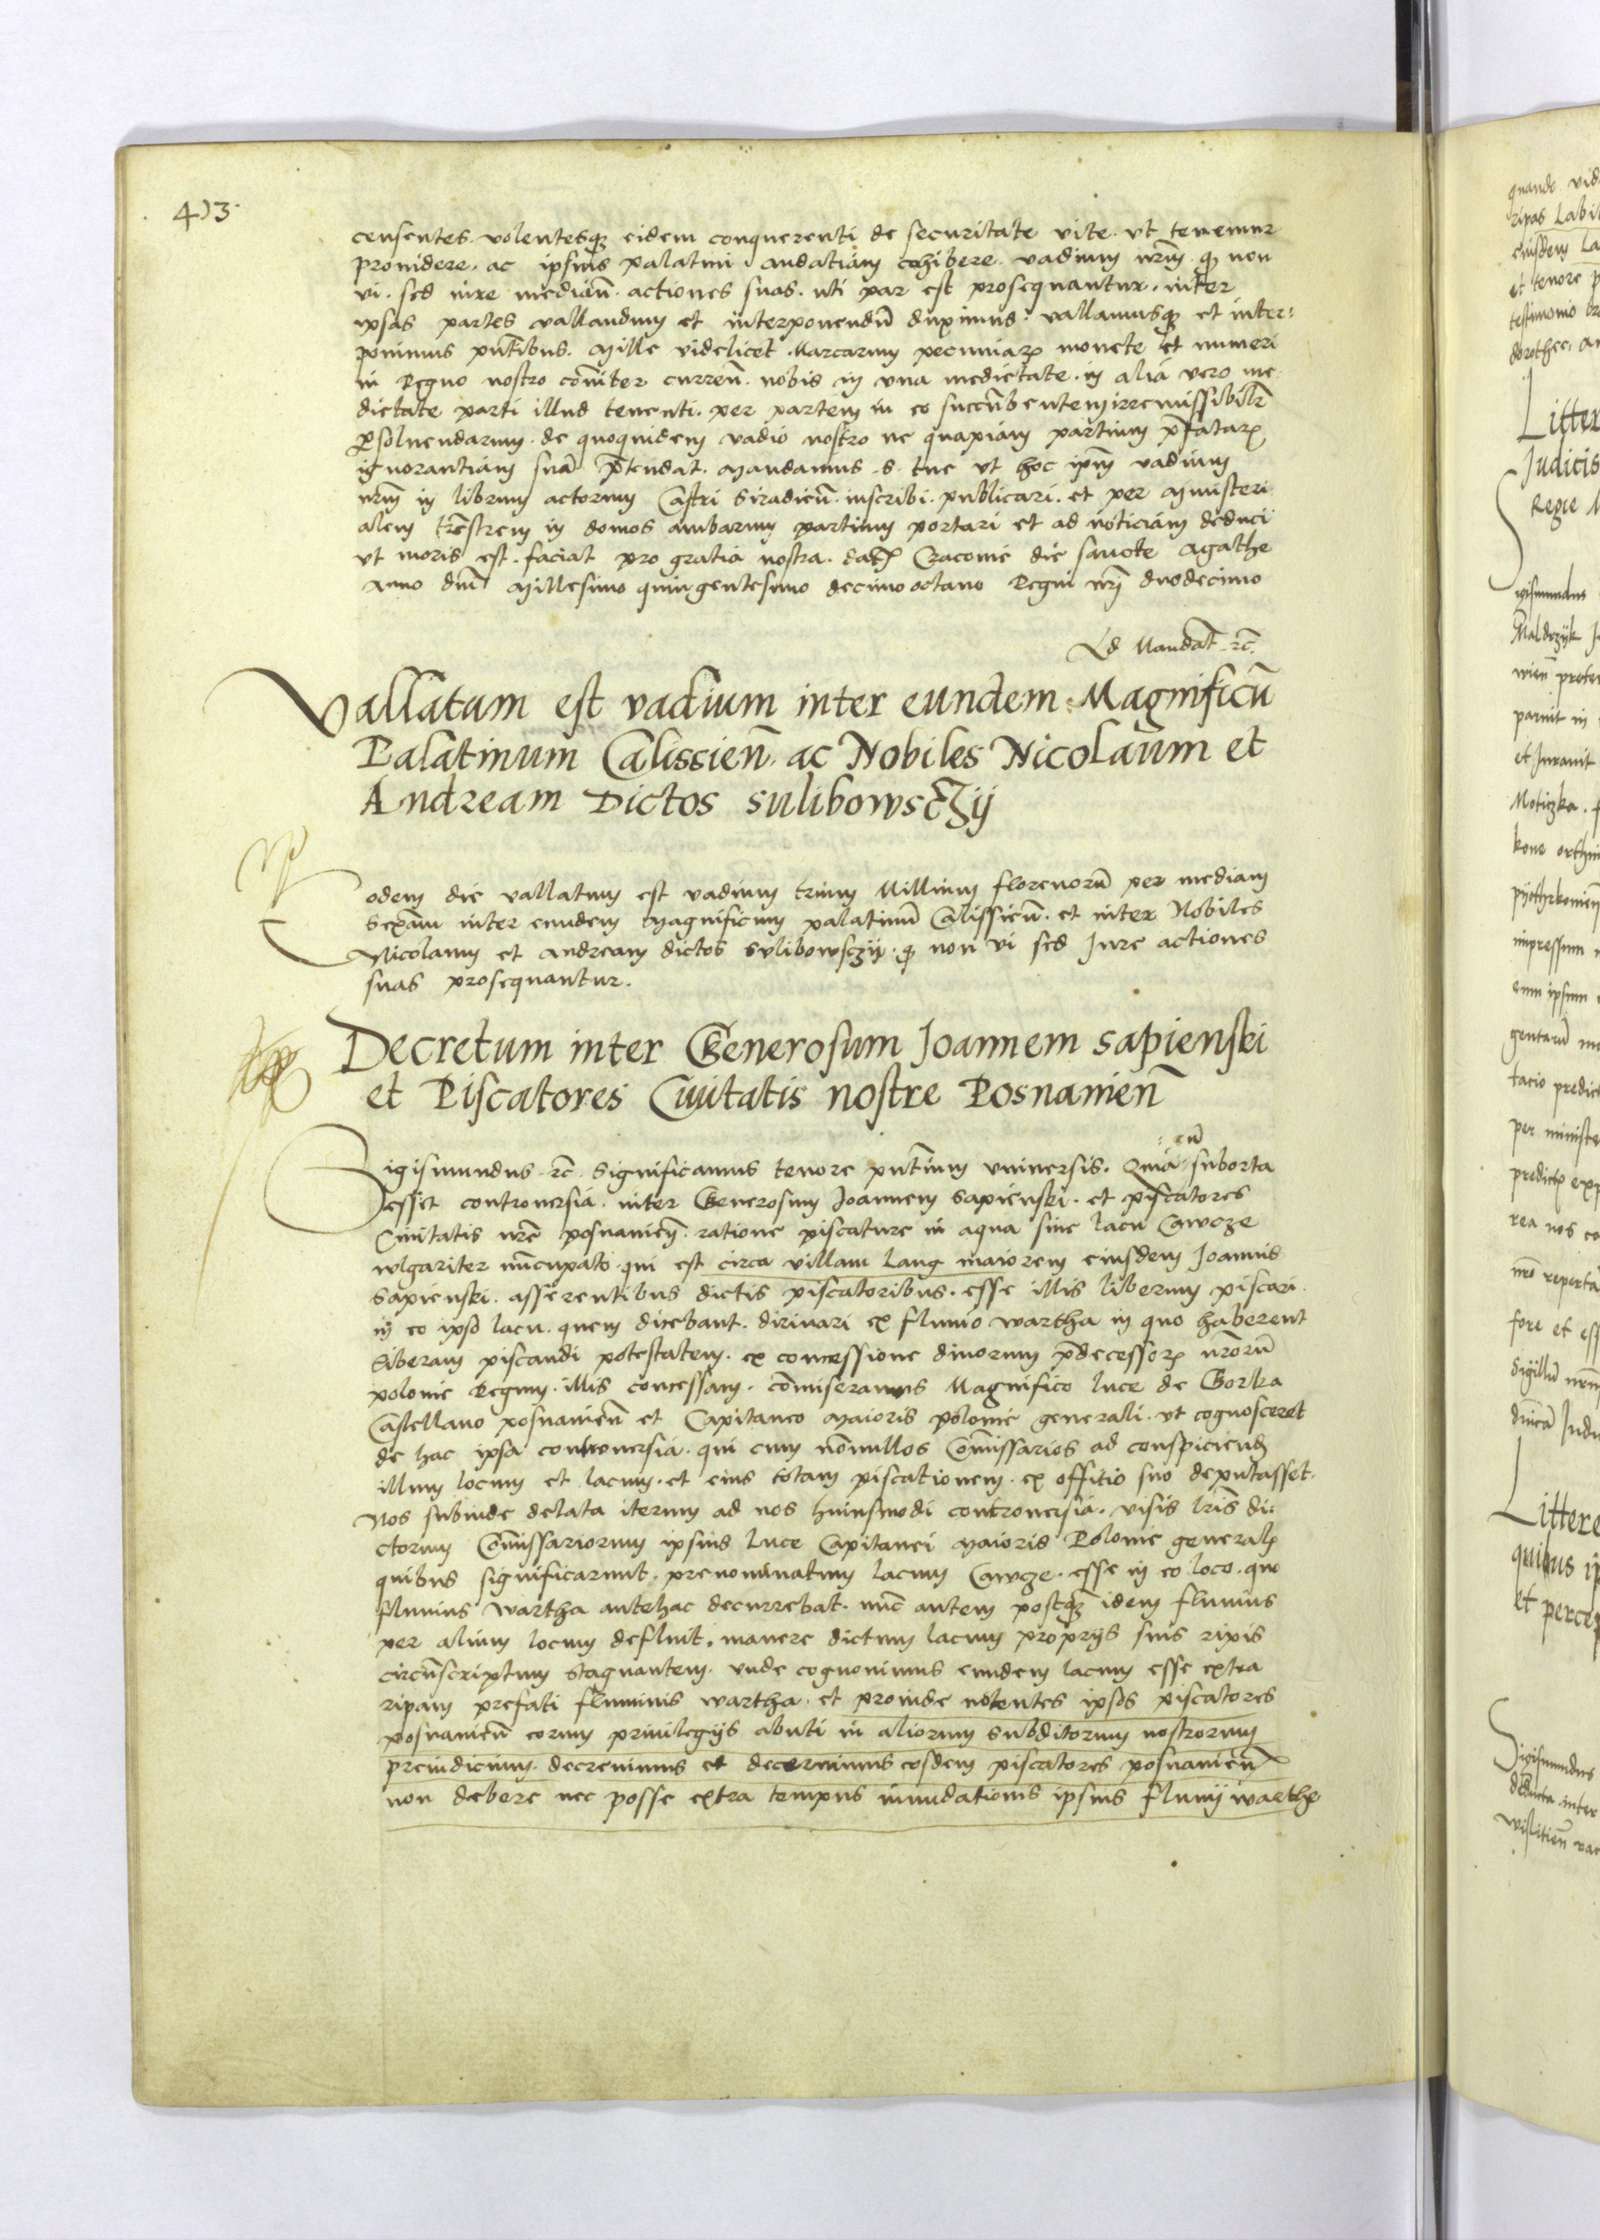 413.
censentes. volentesqꝫ eidem conquerenti de securitate vite. vt tenemur
prouidere. ac ipsius palatini audatiam cohibere. vadium nr̃m. qꝫ non
vi. sed iure mediañ. actiones suas. uti par est prosequantur. inter
ipsas partes vallandum et interponendũ duximus: vallamusqꝫ et inter:
ponimus pñtibus. Mille videlicet Marcarum pecuniaꝝ monete et numeri
in Regno nostro cõiter curreñ. nobis in vna medietate. in alia vero me
dietate parti illud tenenti. per partem in eo succũbentem irremissibilr̃
ꝑsoluendarum. de quoquidem vadio nostro ne quapiam partium p̃fataꝝ
ignorantiam suã p̃tendat. Mandamus .S. tue vt hoc ipm̃ vadium
nr̃m in librum actorum Castri Siradieñ. inscribi. publicari. et per ministeri
alem tr̃estrem in domos ambarum partium portari et ad noticiam deduci
vt moris est. faciat pro gratia nostra. datꝭ Cracouie die sancte Agathe
Anno dñi Millesimo quingentesimo decimo octauo Regni nr̃i duodecimo
Ad Mandat̃ ꝛc̃.
Vallatum est vadium inter eundem Magnificũ
Palatinum Calissieñ. ac Nobiles Nicolaum et
Andream Dictos sulibowsczij
Eodem die vallatum est vadium trium Millium florenorũ per mediam
sexam inter eundem Magnificum palatinũ Calissieñ. et inter Nobiles
Nicolaum et Andream dictos Sulibowsczij. qꝫ non vi sed Jure actiones
suas prosequantur.
Decretum inter Generosum Joannem sapienski
et Piscatores Ciuitatis nostre Posnanieñ
cũ
Sigismundus ꝛc̃. Significamus tenore pñtium vniuersis. Quia suborta
esset controuersia. inter Generosum Joannem Sapienski. et piscatores
Ciuitatis nr̃e posnanieñ. ratione piscature in aqua siue lacu Cawcze
wlgariter nũcupato. qui est circa villam Lang maiorem eiusdem Joannis
Sapienski. asserentibus dictis piscatoribus. esse illis liberum piscari.
in eo ipso lacu. quem dicebant. diriuari ex fluuio wartha in quo haberent
liberam piscandi potestatem. ex concessione diuorum p̃decessoꝝ nr̃orũ
polonie Regum. illis concessam. cõmiseramus Magnifico Luce de Gorka
Castellano posnanieñ et Capitaneo Maioris polonie generali. vt cognosceret
de hac ipsa controuersia. qui cum nõnullos Cõmissarios ad conspiciendꝫ
illum locum et lacum. et eius totam piscationem. ex offitio suo deputasset.
Nos subinde delata iterum ad nos huiusmodi controuersia. visis lr̃is di:
ctorum Cõmissariorum ipsius Luce Capitanei Maioris Polonie generalꝭ
quibus significarunt. prenominatum lacum Cawcze. esse in eo loco. quo
fluuius wartha antehac decurrebat. nũc autem postqꝫ idem fluuius
per alium locum defluit. manere dictum lacum proprijs suis ripis
circũscriptum stagnantem. vnde cognouimus eundem lacum esse extra
ripam prefati fluminis wartha. et proinde nolentes ipsos piscatores
posnanieñ eorum priuilegijs abuti in aliorum subditorum nostrorum
preiudicium. decreuimus et decernimus eosdem piscatores posnanieñ
non debere nec posse extra tempus inundationis ipsius fluuij warthe